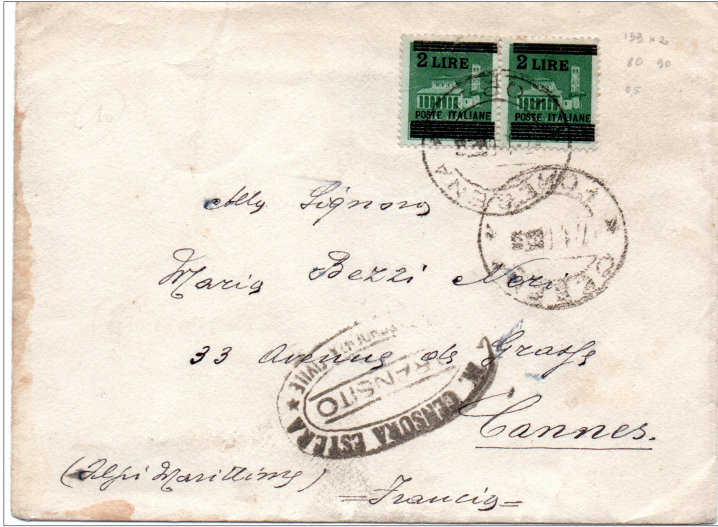 2 LIRE 2 LIRE
POSTE ITALIANE POSTE ITALIANE
153 x 2
80 90
0,5
Alla Signora
Maria Bezzi Neri
33 Avenue de Grasse
Cannes.
(Alpi Marittime)
=Francia=
M. CENSURA ESTERA
TRANSITO
CIVILE